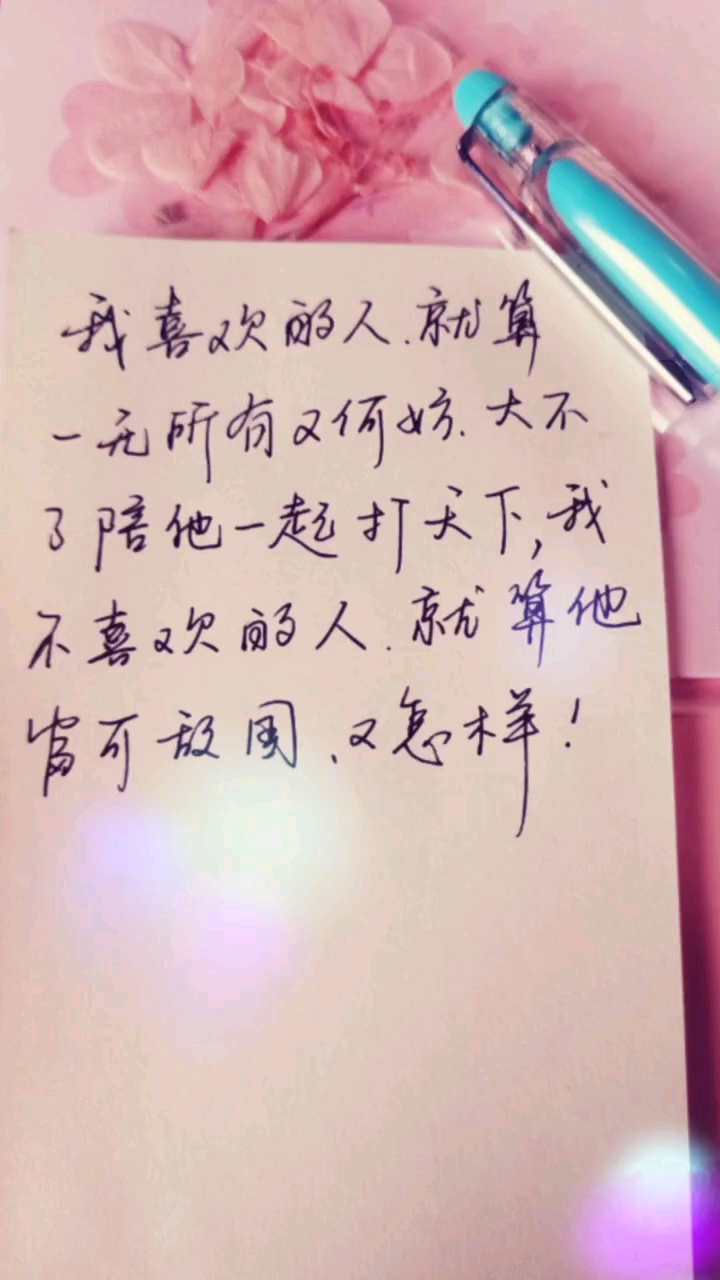 我喜欢的人.就算
一无所有又何妨.大不
了陪他一起打天下,我
不喜欢的人.就算他
富可敌国、又怎样!